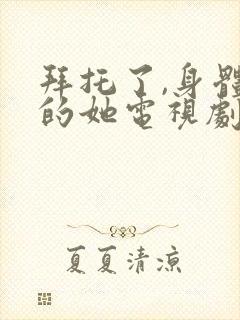 拜托了,身體
的她電視劇
夏夏清涼